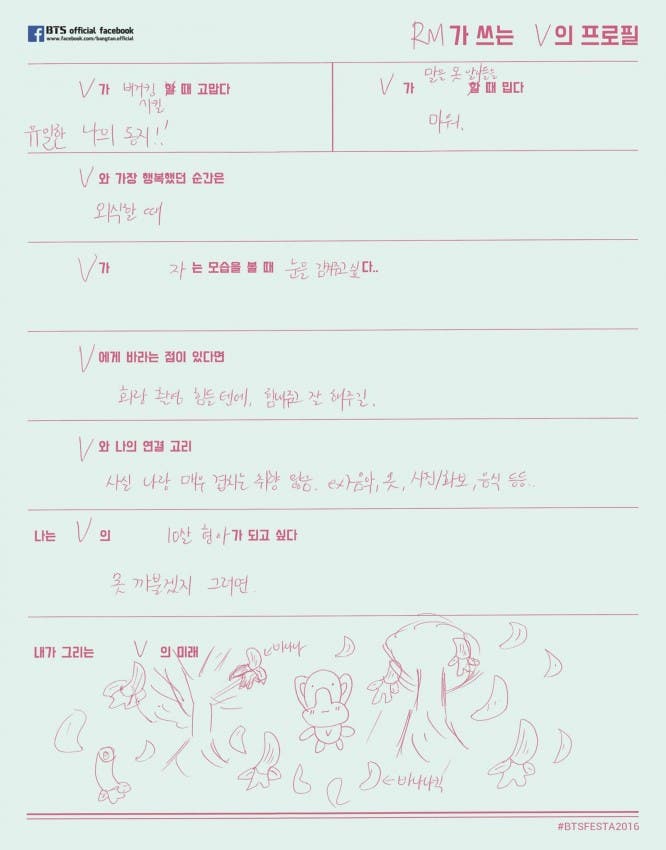 BTS official facebook
www.facebook.com/bangtan.official
RM가 쓰는 V의 프로필
V가 버거킹 시킬 때 고맙다
유일한 나의 동지!!
V가 말을 못 알아들을 때 밉다
마워.
V와 가장 행복했던 순간은
외식할 때
V가 자는 모습을 볼 때 눈을 감겨주고 싶다..
V에게 바라는 점이 있다면
화랑 촬영 힘들텐데, 힘내주고 잘 해주길.
V와 나의 연결 고리
사실 나랑 매우 겹치는 취향 많음. ex)음악, 옷, 사진/화보, 음식 등등..
나는 V의 10살 형아가 되고 싶다
못 까불겠지 그러면
내가 그리는 V의 미래
←바나나
V
←바나나킥
#BTSFESTA2016